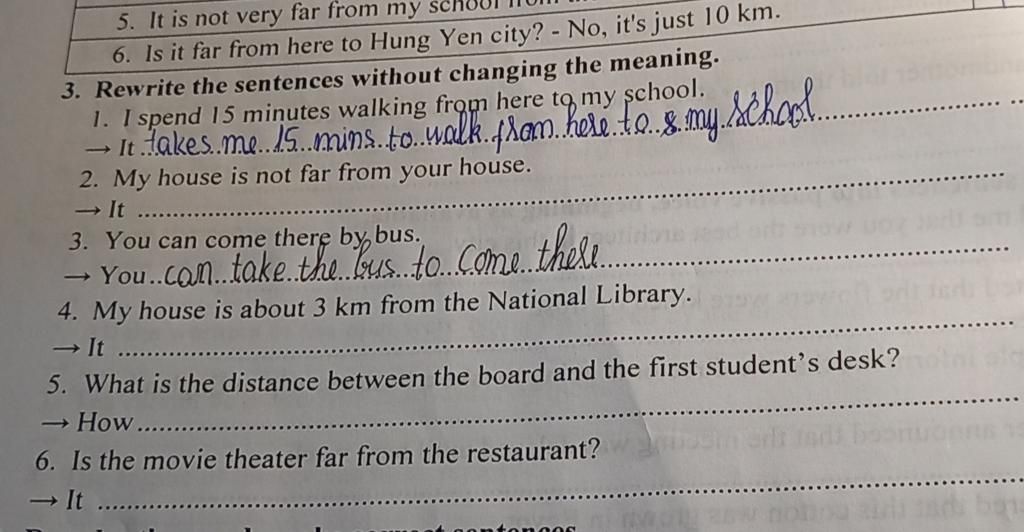 5. It is not very far from my school
6. Is it far from here to Hung Yen city? - No, it's just 10 km.
3. Rewrite the sentences without changing the meaning.
1. I spend 15 minutes walking from here to my school.
→ It takes me 15 mins to walk from here to my school
2. My house is not far from your house.
→ It ..........
3. You can come there by bus.
→ You can take the bus to come there
4. My house is about 3 km from the National Library.
→ It ..........
5. What is the distance between the board and the first student's desk?
→ How ..........
6. Is the movie theater far from the restaurant?
→ It ..........